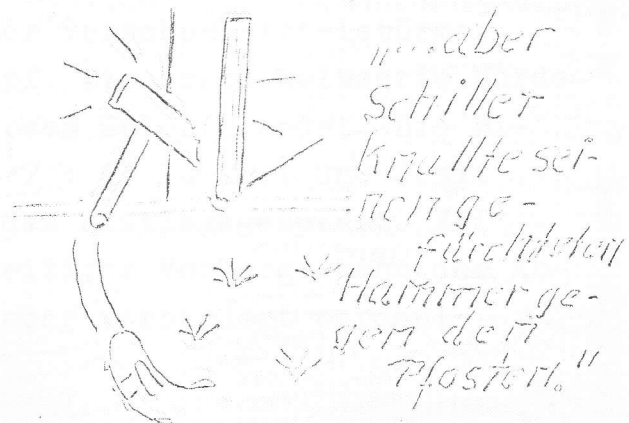 „...aber
Schiller
knallte sei-
nen ge-
fürchteten
Hammer ge-
gen den
Pfosten."